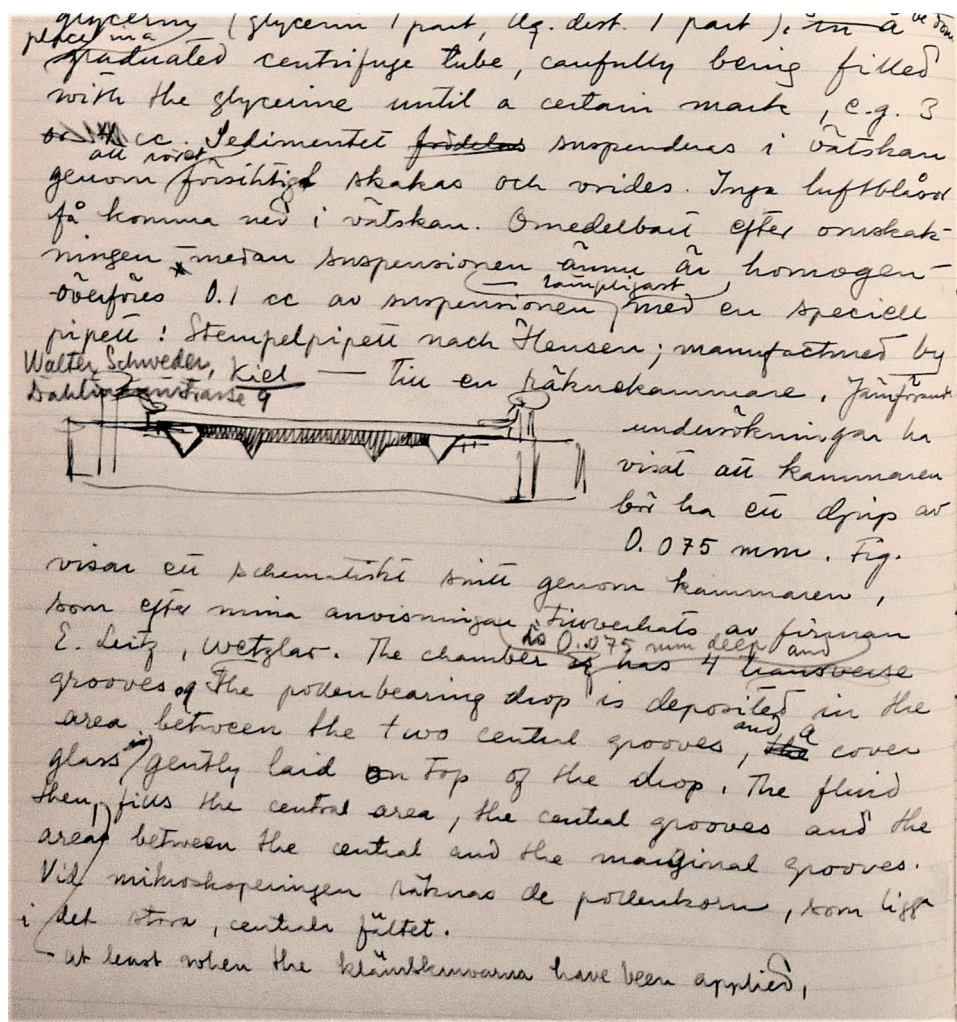 glycerin (glycerin 1 part, aq. dest. 1 part). in a
place in a
graduated centrifuge tube, carefully being filled
with the glycerine until a certain mark, e.g. 3
or 4 cc. Sedimentet fördelas suspenderas i vätskan
att röret
genom försiktigt skakas och vrides. Inga luftblåsor
få komma ned i vätskan. Omedelbart efter omskak-
ningen medan suspensionen ännu är homogen –
– lämpligast
överföres 0.1 cc av suspensionen med en speciell
pipett: Stempelpipett nach Hensen; manufactured by
Walter Schweder, Kiel — till en räknekammare. Jämförande
Dahlmannstrasse 9
undersökningar ha
visat att kammaren
bör ha ett djup av
0.075 mm. Fig.
visar ett schematiskt snitt genom kammaren,
som efter mina anvisningar tillverkats av firman
E. Leitz, Wetzlar. The chamber is has 4 transverse
is 0.075 mm deep and
grooves. The pollenbearing drop is deposited in the
area between the two central grooves, the cover
and a
glass gently laid on top of the drop. The fluid
is
then fills the central area, the central grooves and the
areas between the central and the marginal grooves.
Vid mikroskoperingen räknas de pollenkorn, som ligga
i det stora, centrala fältet.
– at least when the klämskruvarna have been applied,